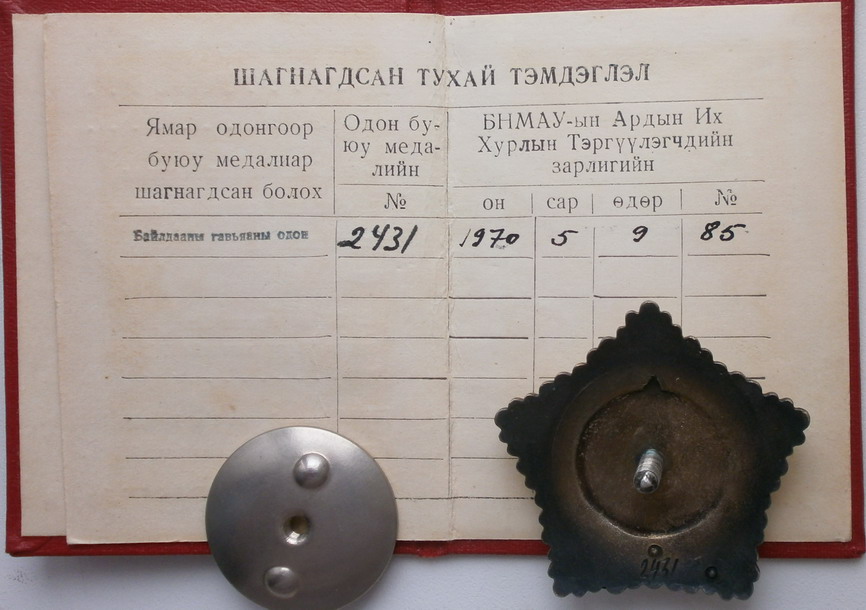 ШАГНАГДСАН ТУХАЙ ТЭМДЭГЛЭЛ
Ямар одонгоор
буюу медалиар
шагнагдсан болох
Одон бу-
юу меда-
лийн
№
БНМАУ-ын Ардын Их
Хурлын Тэргүүлэгчдийн
зарлигийн
он сар өдөр №
Байлдааны гавьяаны одон 2431 1970 5 9 85
2431